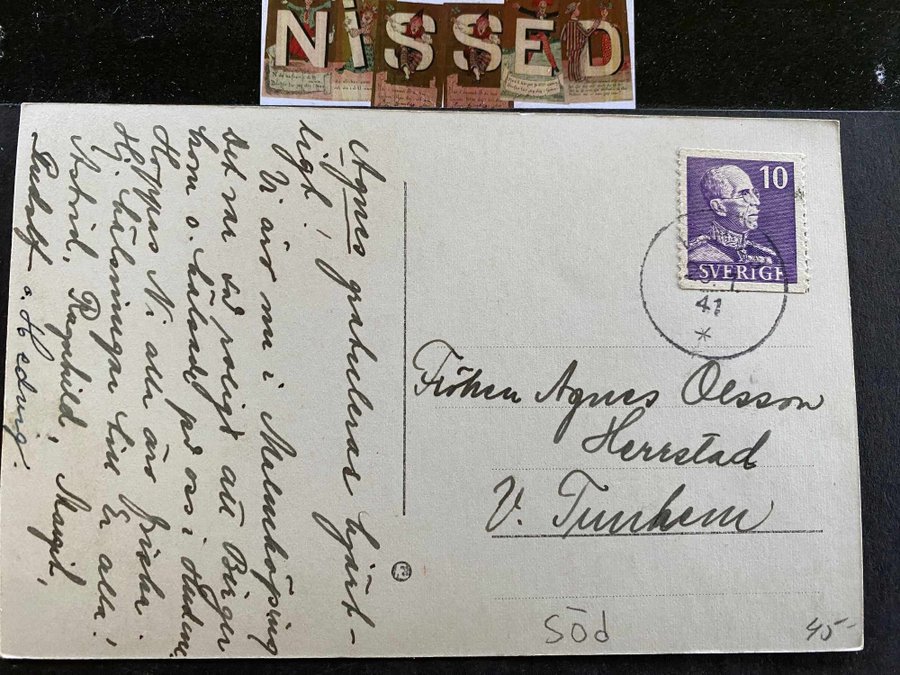 NISSED
Agnes gratuleras hjärt-
ligt!
Vi äro nu i Malmköping
Det var så roligt att Birger
kom o. hälsade på oss i
Hoppas Ni alla äro friska.
Hj. hälsningar till Er alla!
Astrid, Ragnhild, Margit,
Rudolf o. Hedvig.
10
SVERIGE
41
*
Fröken Agnes Olsson
Herrstad
V. Tunhem
SÖd
45-